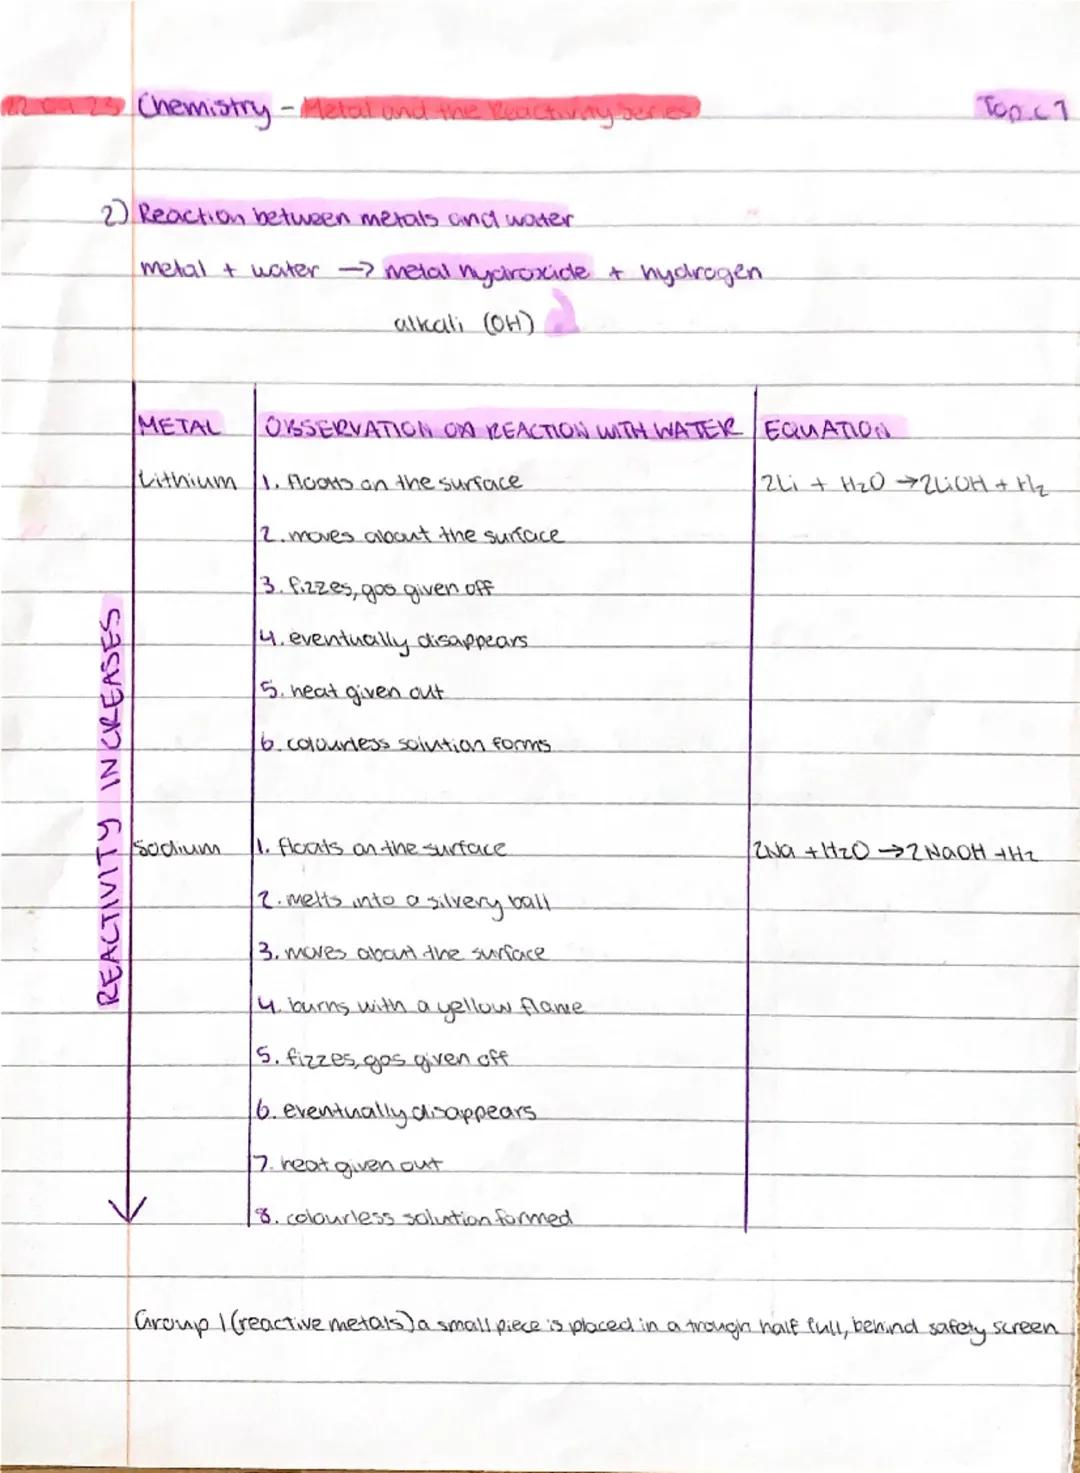 22.09.23 Chemistry - Metal and the Reactivity Series Topic 7
2) Reaction between metals and water
metal + water → metal hydroxide + hydrogen
alkali (OH)
METAL OBSERVATION ON REACTION WITH WATER EQUATION
Lithium 1. floats on the surface 2Li + H2O → 2LiOH + H2
2. moves about the surface
3. fizzes, gas given off
4. eventually disappears
5. heat given out
6. colourless solution forms
REACTIVITY INCREASES
Sodium 1. floats on the surface 2Na + H2O → 2NaOH + H2
2. melts into a silvery ball
3. moves about the surface
4. burns with a yellow flame
5. fizzes, gas given off
6. eventually disappears
7. heat given out
8. colourless solution formed
Group 1 (reactive metals) a small piece is placed in a trough half full, behind safety screen